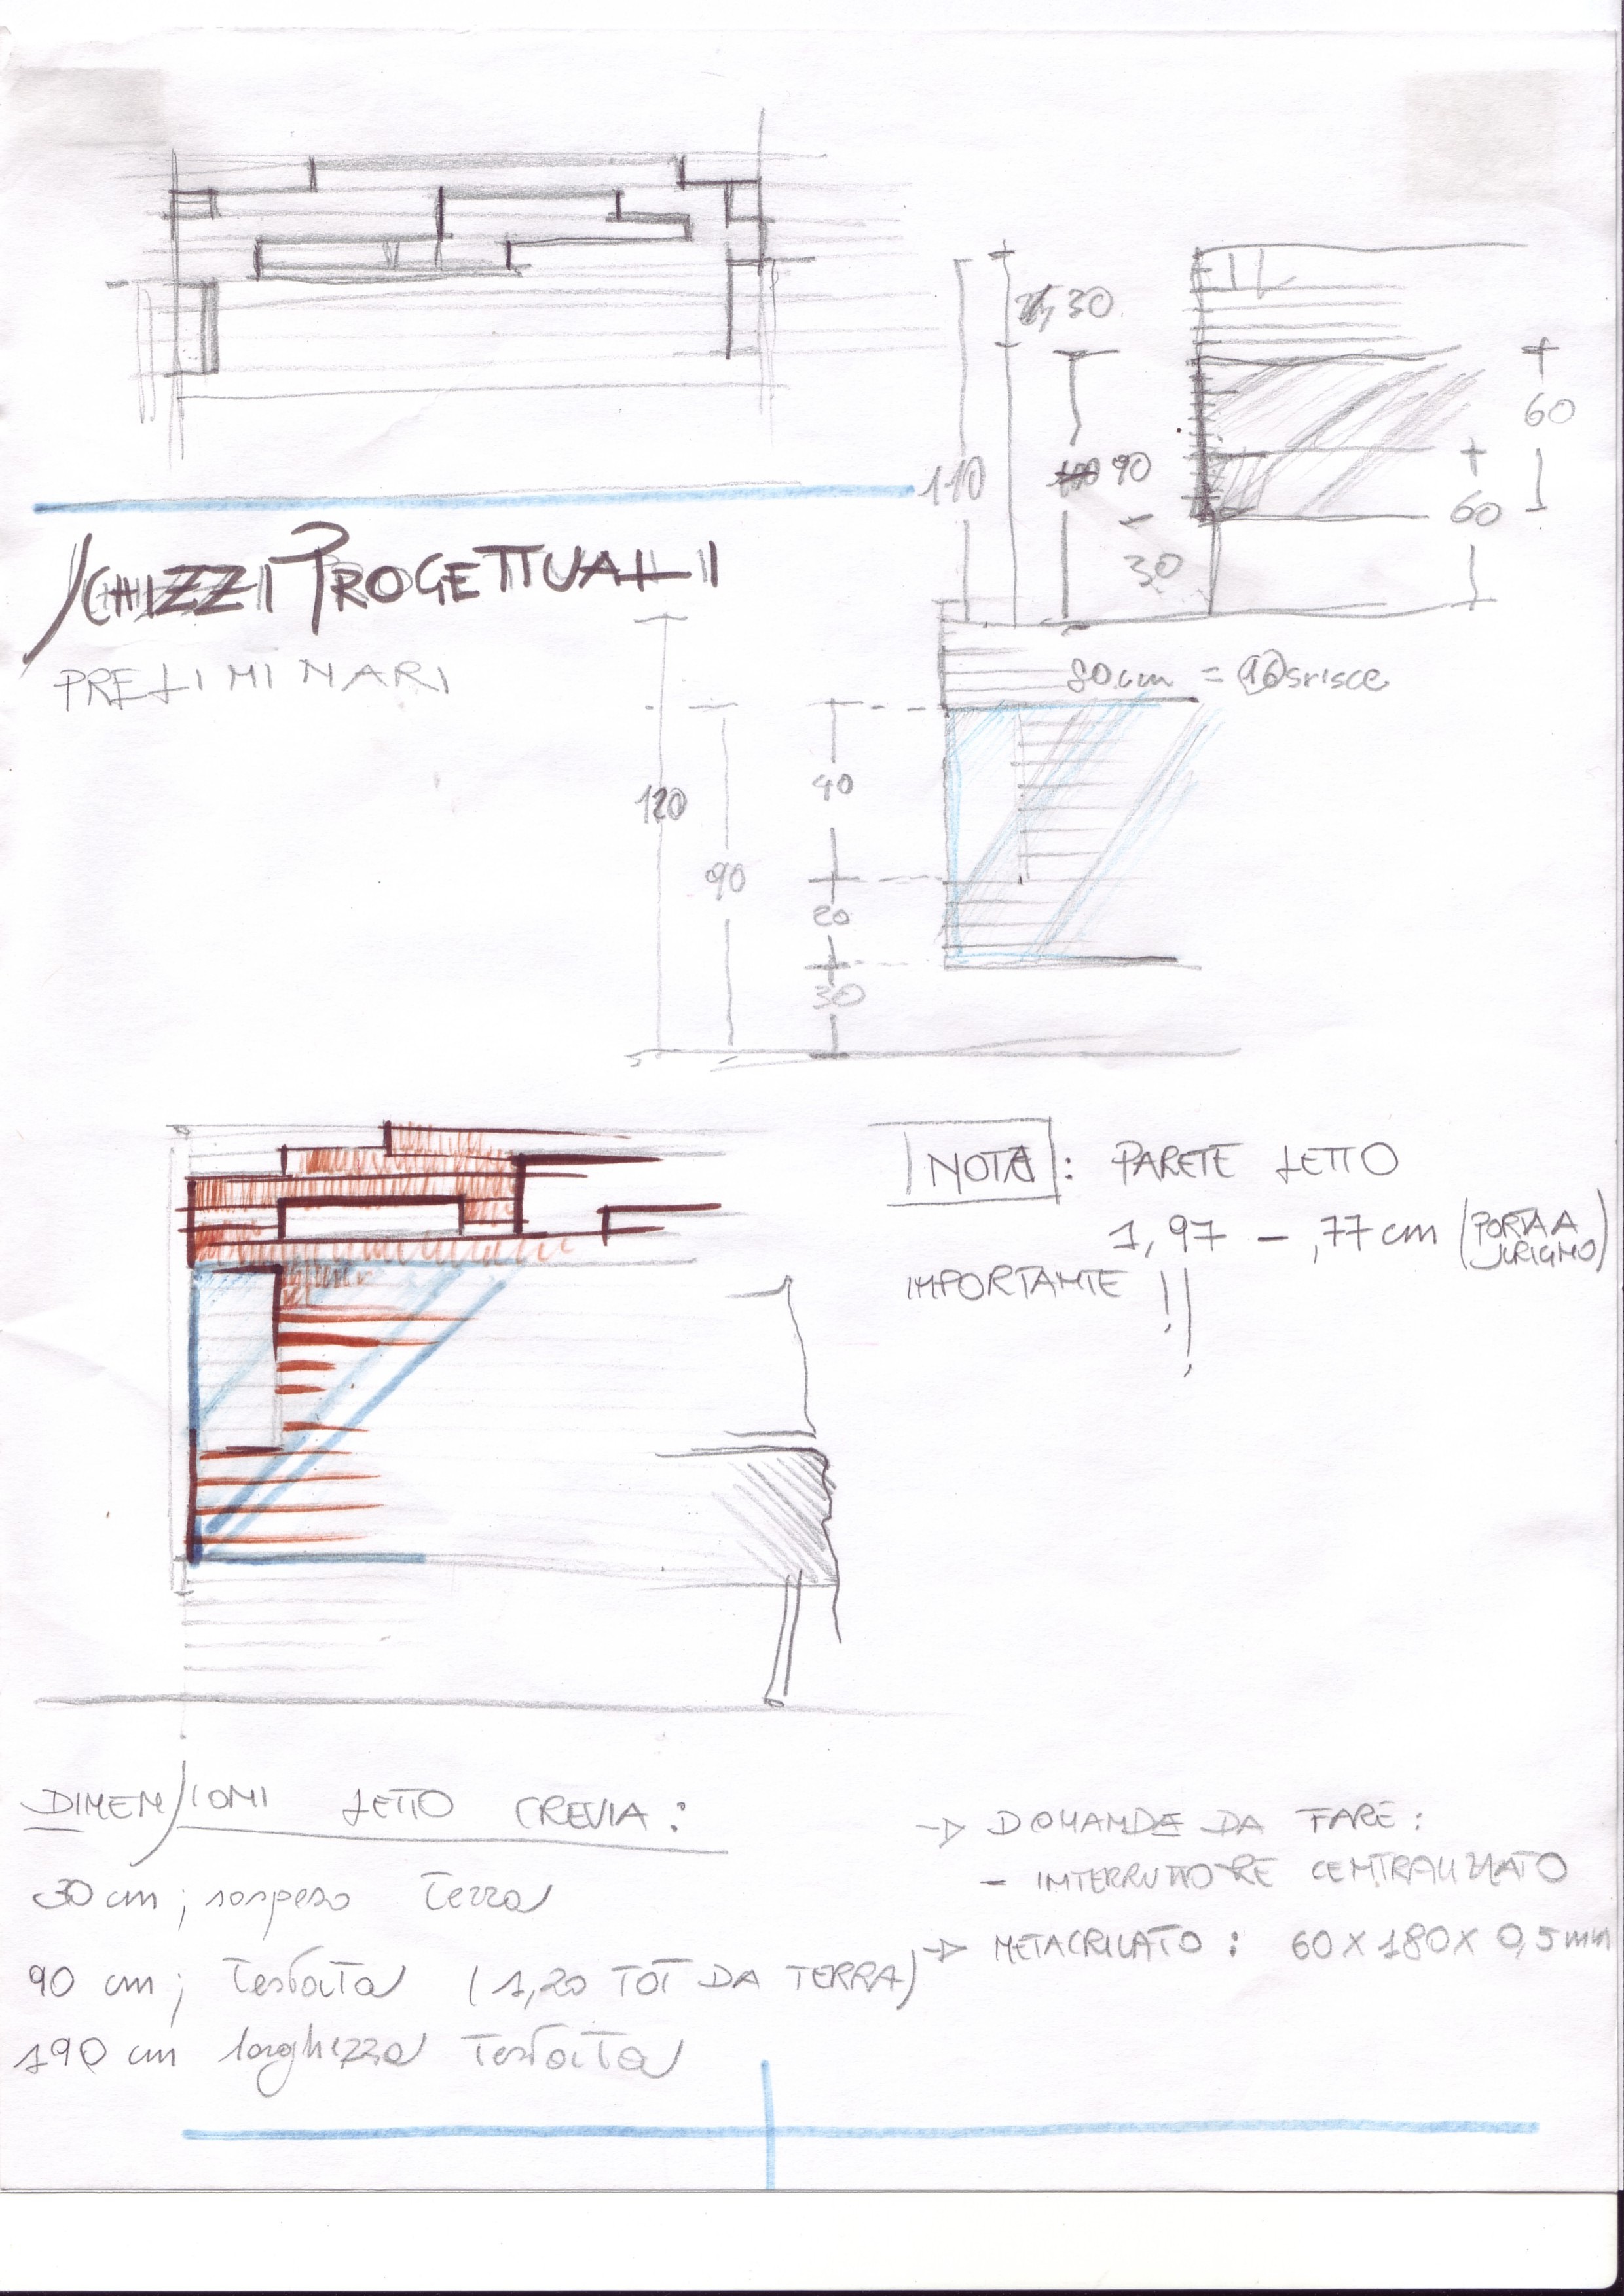 30
60
110
90
60
30
SCHIZZI PROGETTUALI
PRELIMINARI
80 cm = 16 srisce
40
120
90
20
30
NOTA: PARETE LETTO
1,97 - ,77 cm (PORTA A
IMPORTANTE !!
DIMENSIONI LETTO CREVIA:
30 cm; sospeso terra
90 cm; testata (1,20 TOT DA TERRA)
190 cm larghezza testata
→ DOMANDE DA FARE:
- INTERRUTTORE CENTRALIZZATO
→ METACRILATO: 60 x 180 x 0,5 mm